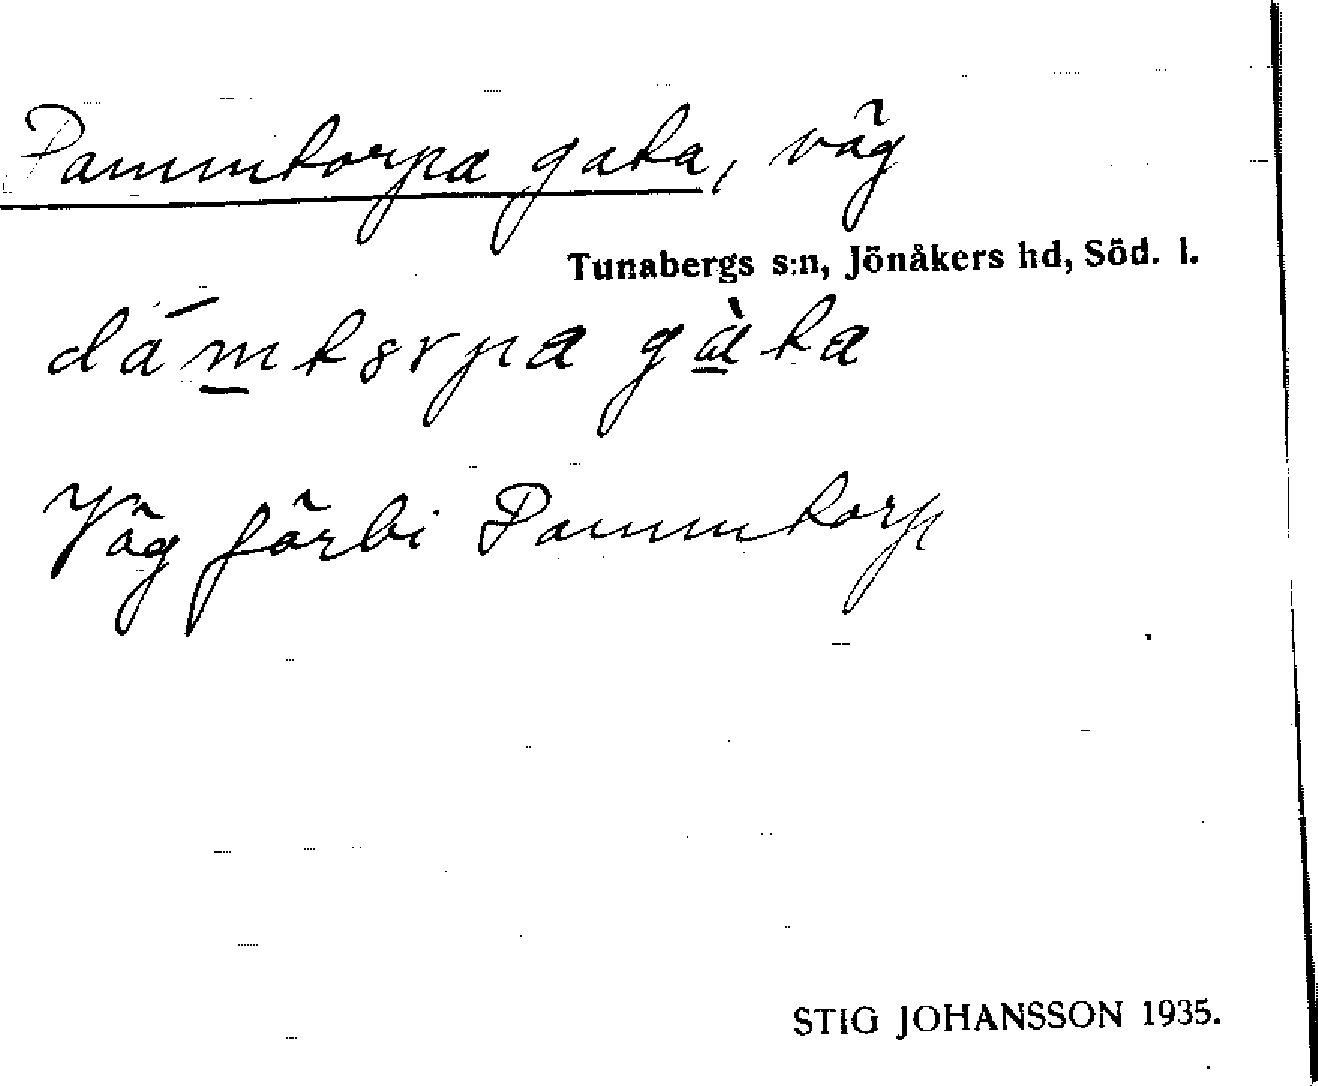 Dammtorpa gata, väg
Tunabergs s:n, Jönåkers hd, Söd. l.
Väg förbi Dammtorp
STIG JOHANSSON 1935.